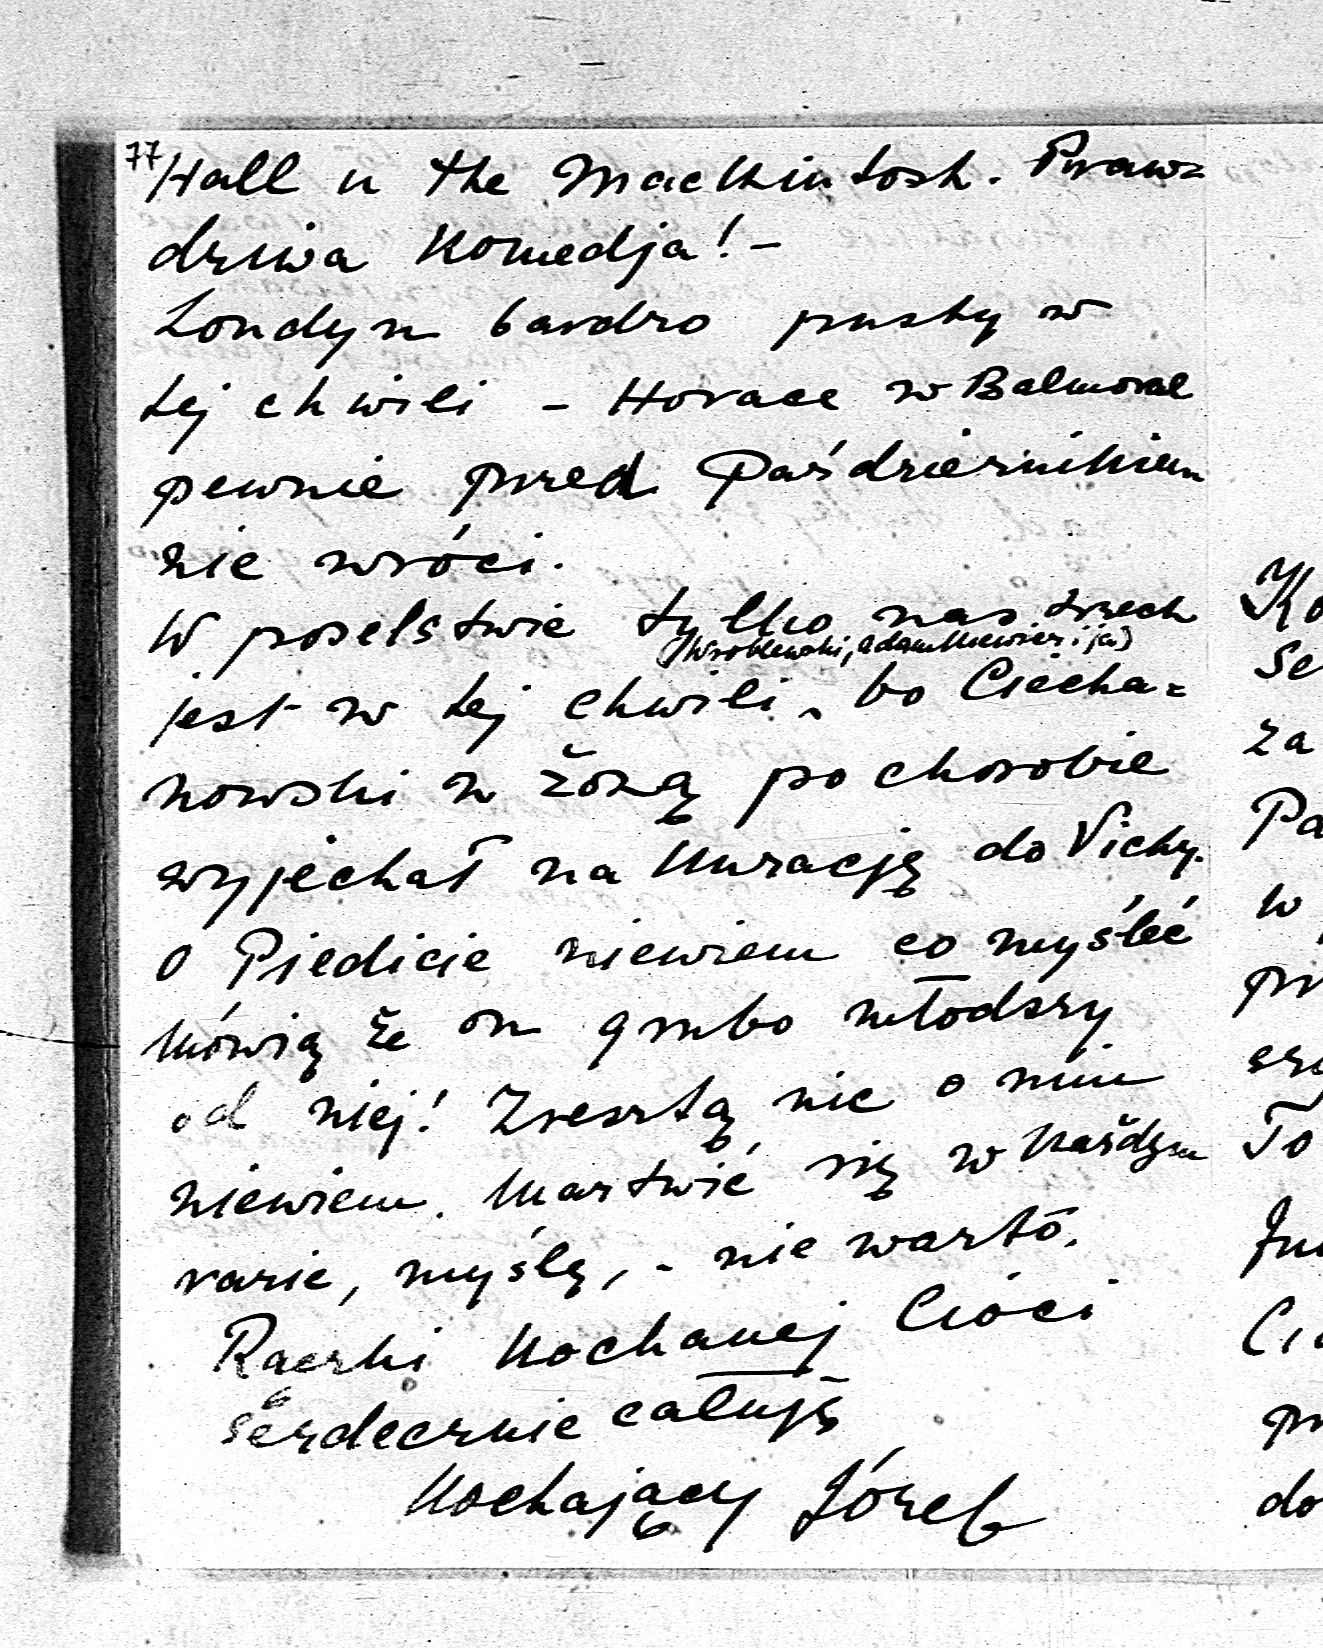 77
Hall u the Mackintosh. Praw=
dziwa Komedja! -
Londyn bardzo pusty w
tej chwili - Horace w Balmoral
pewnie przed Październikiem
nie wróci.
W poselstwie tylko nas trzech
(Wroblewski, Adamkiewicz i ja)
jest w tej chwili, bo Ciecha=
nowski z żoną po chorobie
wyjechał na Kurację do Vichy.
O Piedicie niewiem co myśleć
Mówią że on grubo młodszy
od niej! Zresztą nic o nim
niewiem. Martwić się w Każdym
razie, myślę, - nie warto.
Rączki Kochanej Cioci
serdecznie całuję
Kochający Józef
Ko
se
za
Pa
w
pr
szy
To
Ju
Ci
pr
do